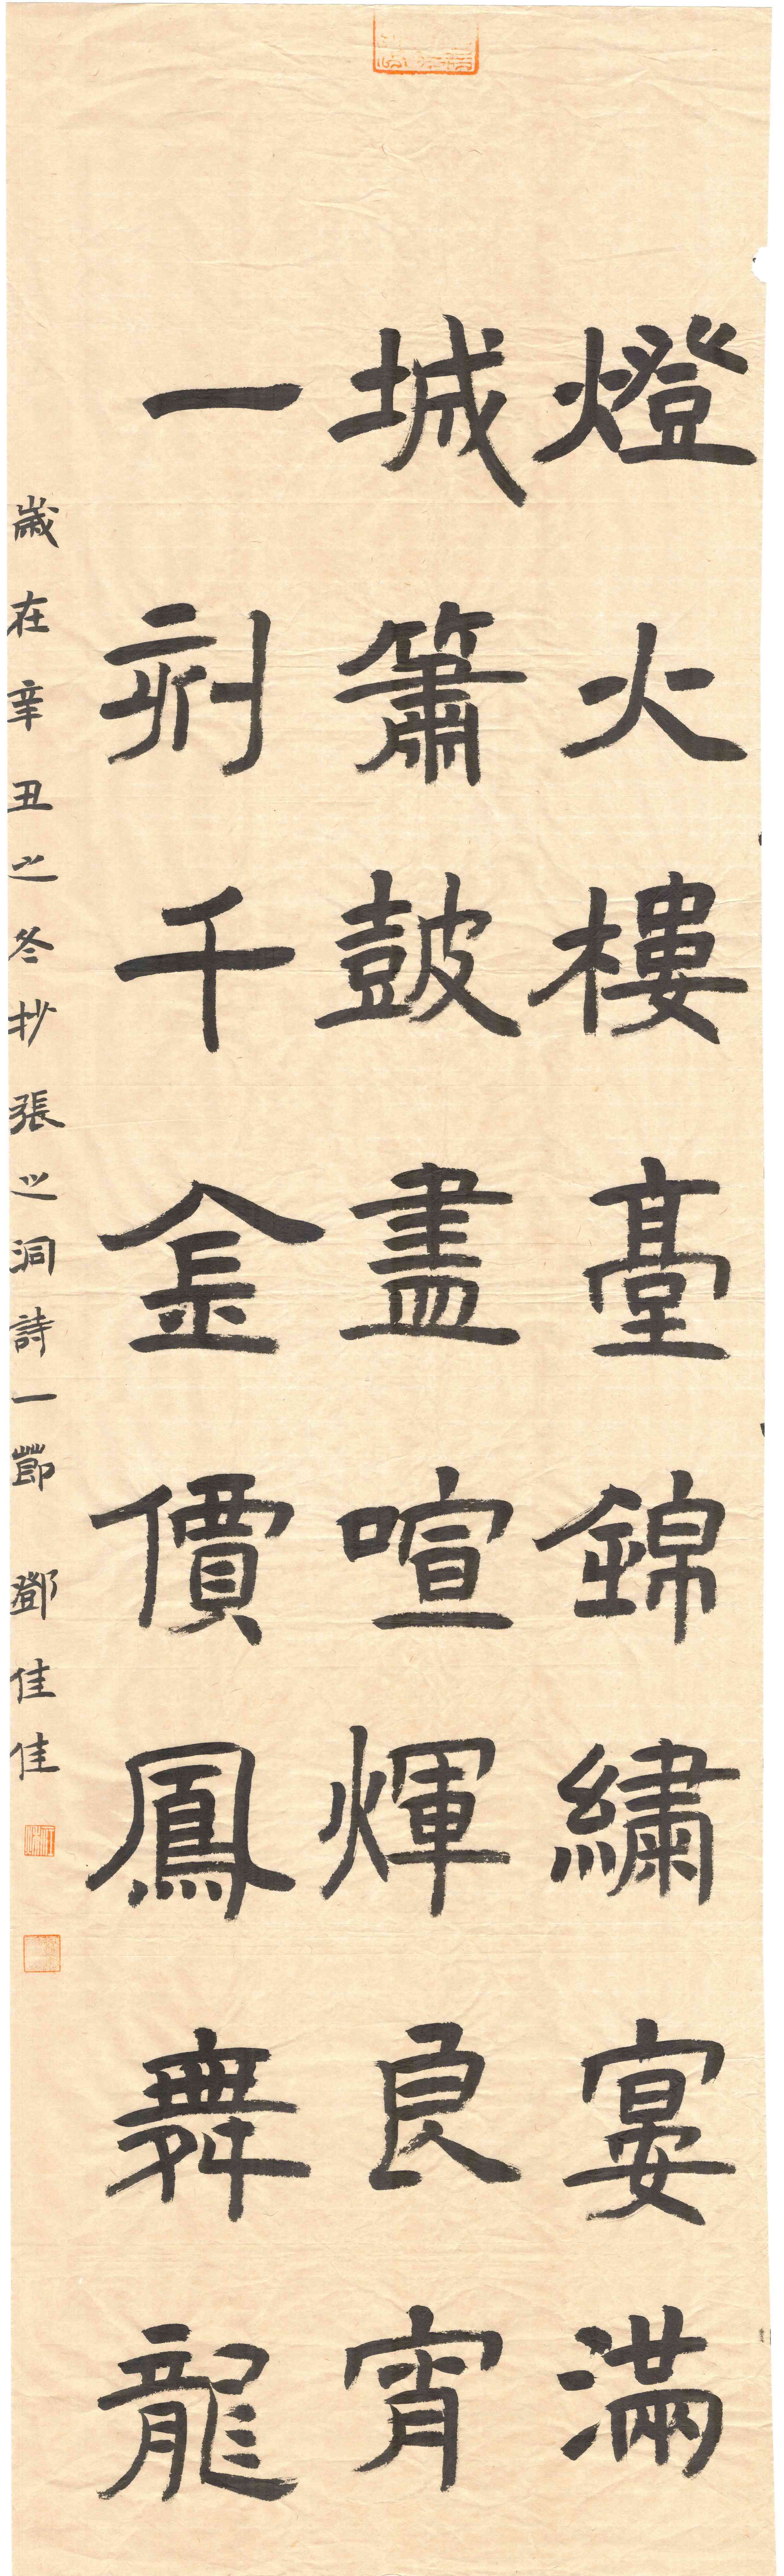 燈火樓臺錦繡宴滿
城簫鼓盡喧輝良宵
一刻千金價鳳舞龍
歲在辛丑之冬抄張之洞詩一節 鄧佳佳